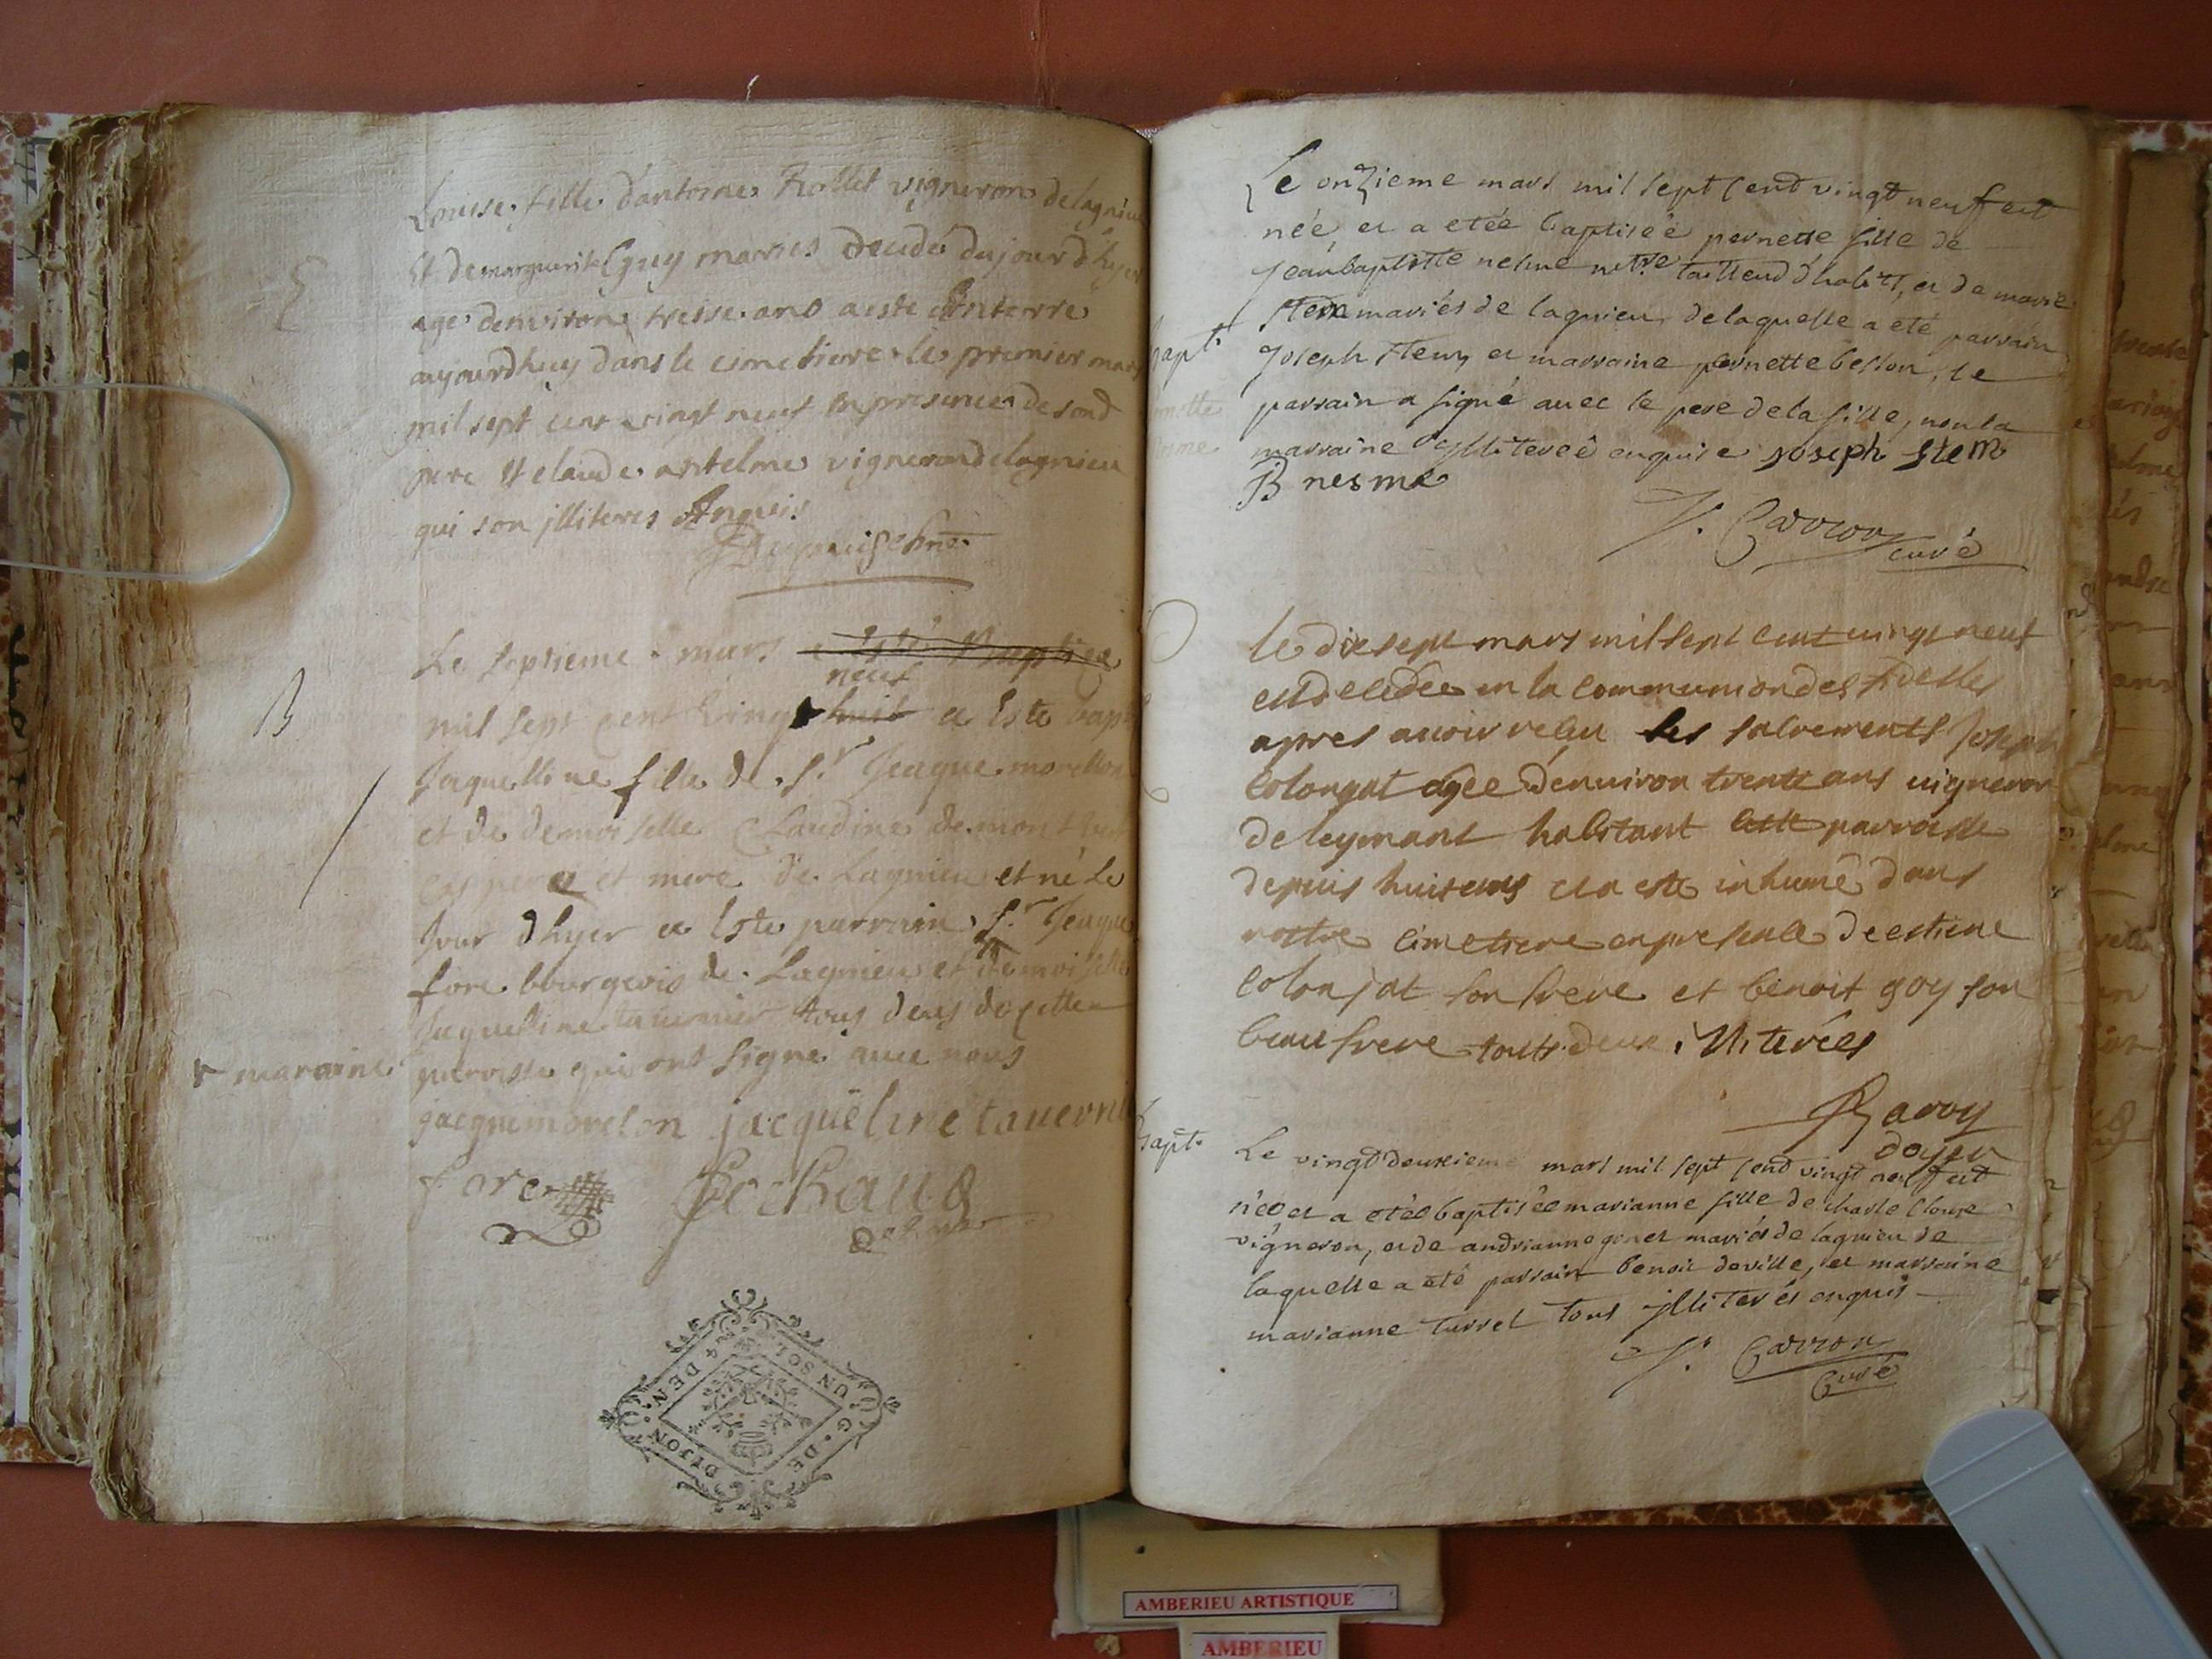 Louisse fille d'antoine Rollet vigneron de lagnieu
Et de marguerite Guy maries decede du jour d'hyer
age denviron tresse ans a este Enterre
aujourdhuy dans le cimetiere le premier mars
mil sept cent vingt neuf En presence de sond
pere Et claude antelme vigneron de lagnieu
qui son illiteres Enquis
Le septieme mars
neuf
B
mil sept cent vingt huit a Este bapt
Jaquelline fille de Sr Jeaque morellon
et de demoiselle Claudine de
ces pere et mere de Lagnieu et né Le
Jour d'hyer a Este parrain Sr Jeaque
fore bourgeois de Lagnieu et demoiselle
Jaquelline tavernier tous deus de cette
maraine
parroisse qui ont signe avec nous
jacque morelon jacquëline tavernie
fore
G. DE DIJON UN SOL 4 DEN.
Le onzieme mars mil sept cent vingt neuf est
née, et a etée baptiseé pernette fille de
Jean baptiste nesme mtre tailleur d'habits, et de marie
Stem mariés de lagnieu de laquelle a eté parrain
bapt.
Joseph Stem, et marraine pernette besson, le
parrain a signé avec le pere de la fille, non la
marraine illitereé enquise joseph stem
B nesme
J. Carron
curé
le dixsept mars mil sept cent vingt neuf
est decedée en la communion des fidelles
apres avoir receu les sacrements Joseph
Colonjat agée d'environ trente ans vigneron
de leymant habitant cette parroisse
depuis huit ans et a este inhumé dans
nostre cimetiere en presence de estiene
Colonjat son frere et benoit goy son
beau frere touts deux illiterées
doyen
bapt.
Le vingt deuxieme mars mil sept cent vingt neuf est
née et a etée baptisée marianne fille de charle
vigneron, et de andrianne gonet mariés de lagnieu de
laquelle a eté parrain benoit deville, et marraine
marianne turrel tous illiterés enquis
J. Carron
Curé
AMBERIEU ARTISTIQUE
AMBERIEU